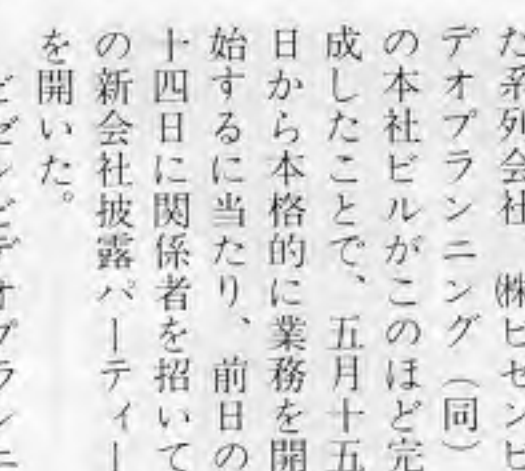 た系列会社 ㈱ビゼンビ
デオプランニング（同）
の本社ビルがこのほど完
成したことで、五月十五
日から本格的に業務を開
始するに当たり、前日の
十四日に関係者を招いて
の新会社披露パーティー
を開いた。
ビゼンビデオプランニ